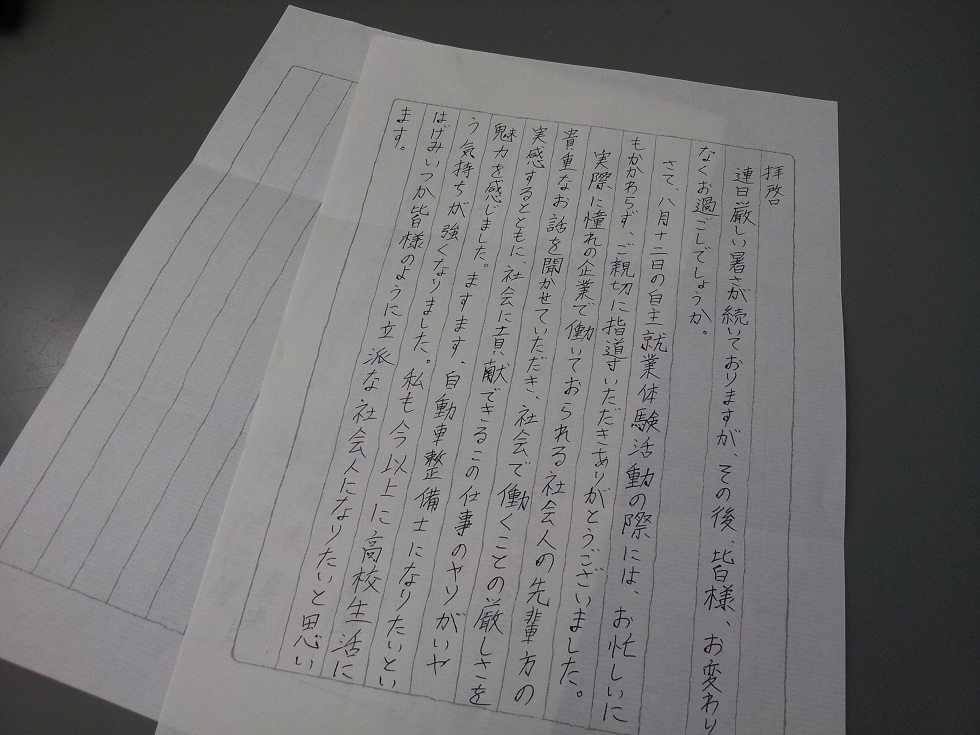 拝啓
連日厳しい暑さが続いておりますが、その後、皆様、お変わり
なくお過ごしでしょうか。
さて、八月十二日の自主就業体験活動の際には、お忙しいに
もかかわらず、ご親切に指導いただきありがとうございました。
実際に憧れの企業で働いておられる社会人の先輩方の
貴重なお話を聞かせていただき、社会で働くことの厳しさを
実感するとともに、社会に貢献できるこの仕事のヤリがいや
魅力を感じました。ますます、自動車整備士になりたいとい
う気持ちが強くなりました。私も今以上に、高校生活に
はげみいつか皆様のように立派な社会人になりたいと思い
ます。